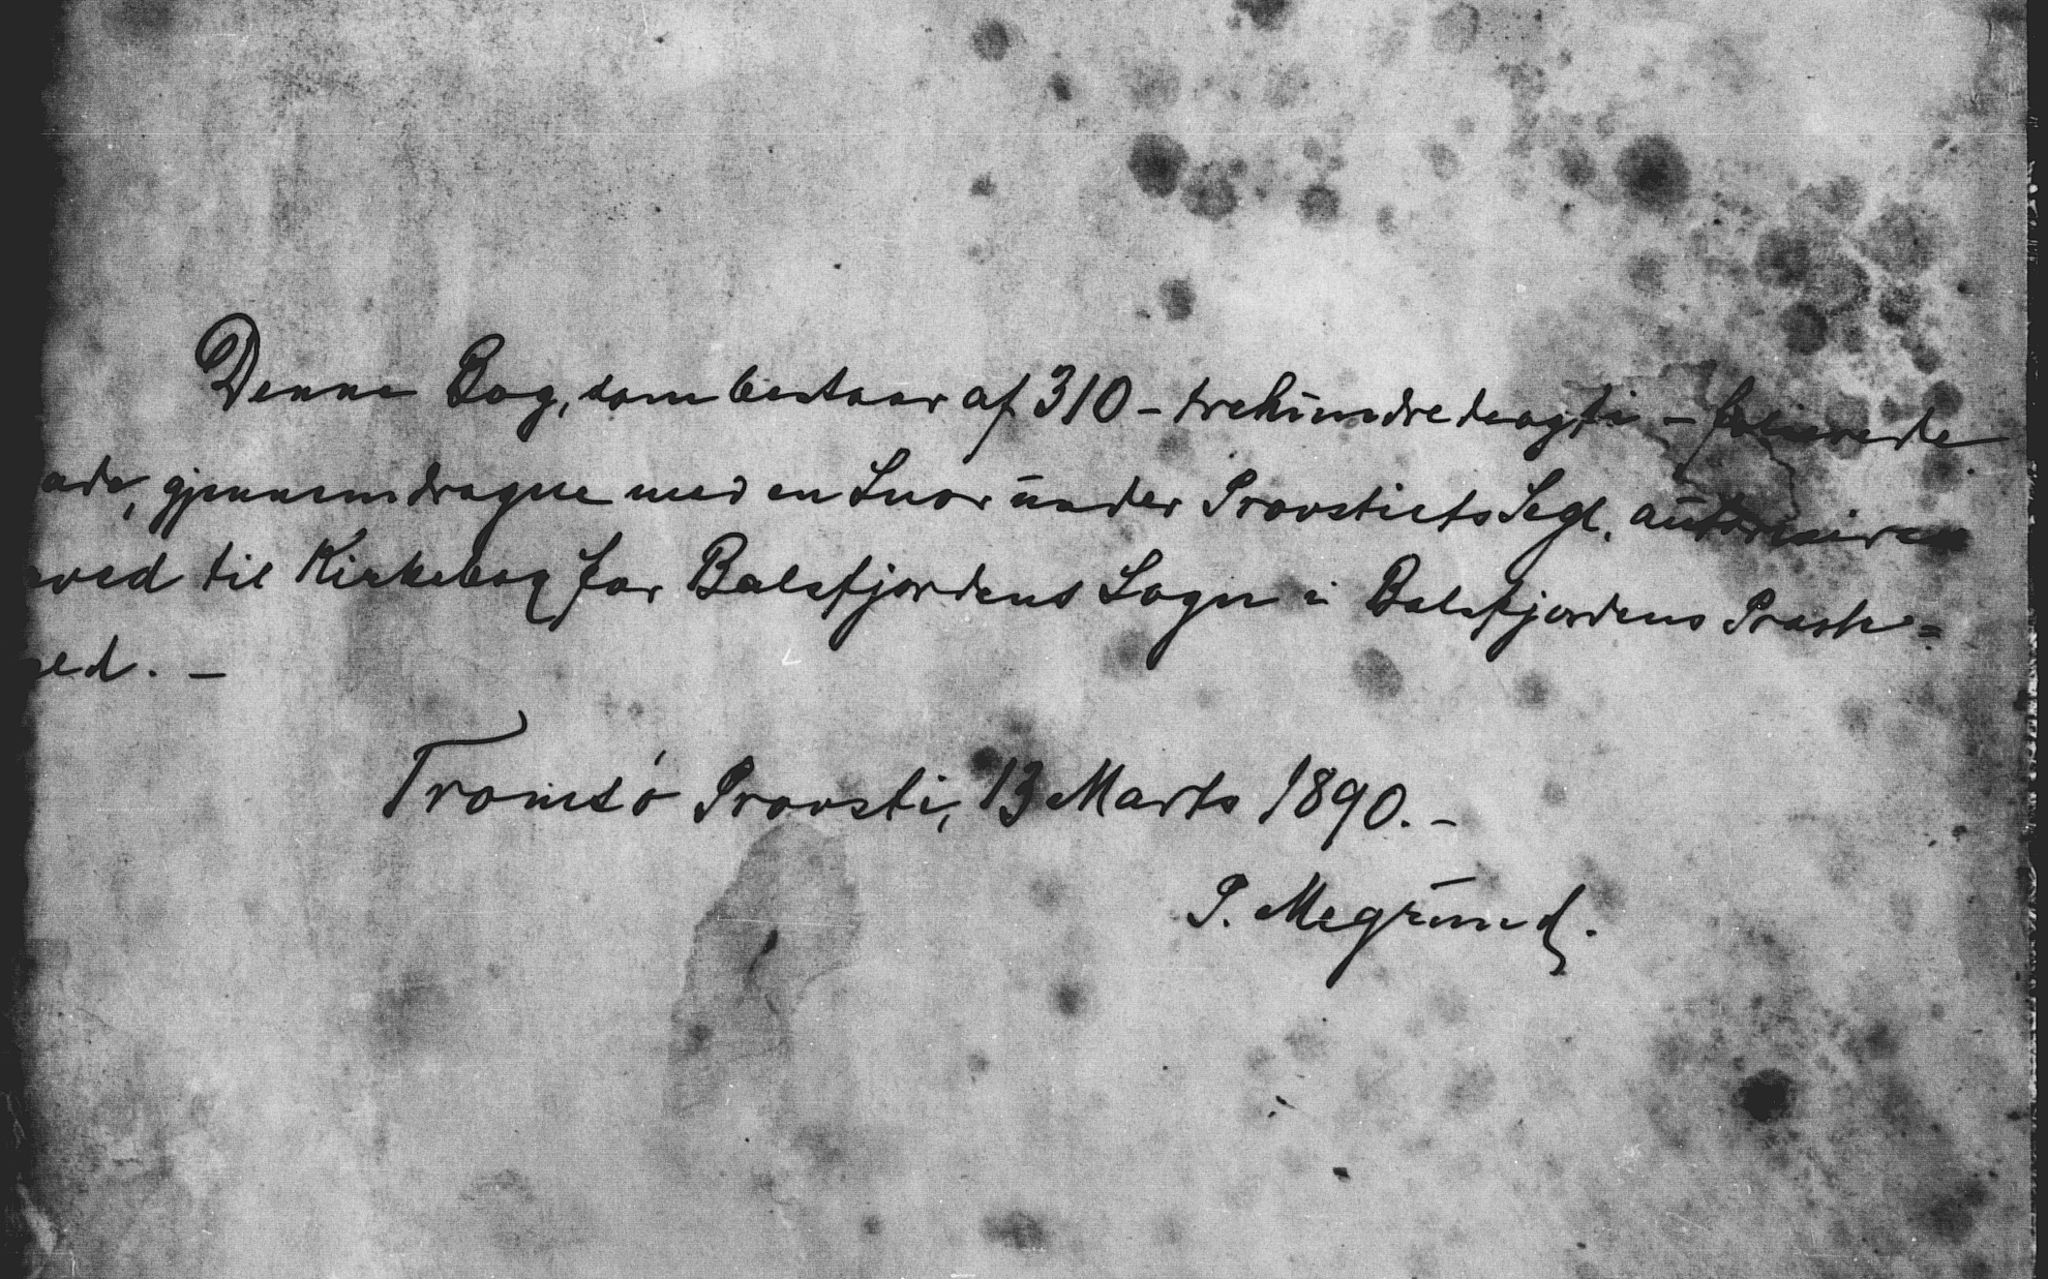 Denne Bog, som bestaar af 310 - trehundredeogti - folierede
ade, gjennemdragne med en Snor under Provstiets Segl, autoriseres
ved til Kirkebog for Balsfjordens Sogn i Balsfjordens Præste=
ed. -
Tromsö Provsti, 13 Marts 1890. -
P. Megrund.